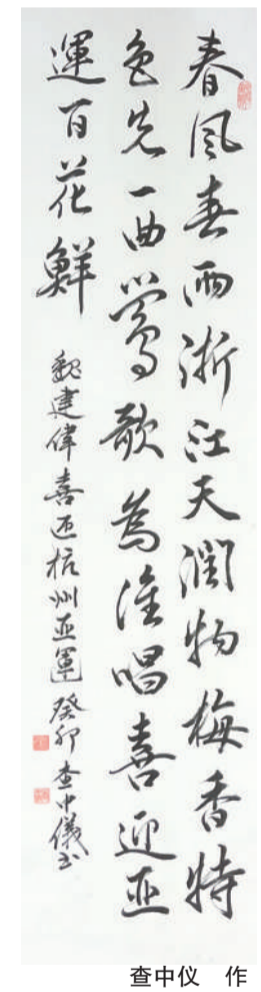 春风春雨浙江天润物梅香特
色先一曲莺歌為谁唱喜迎亚
運百花鲜
魏建偉喜迎杭州亚運癸卯查中儀书
查中仪 作